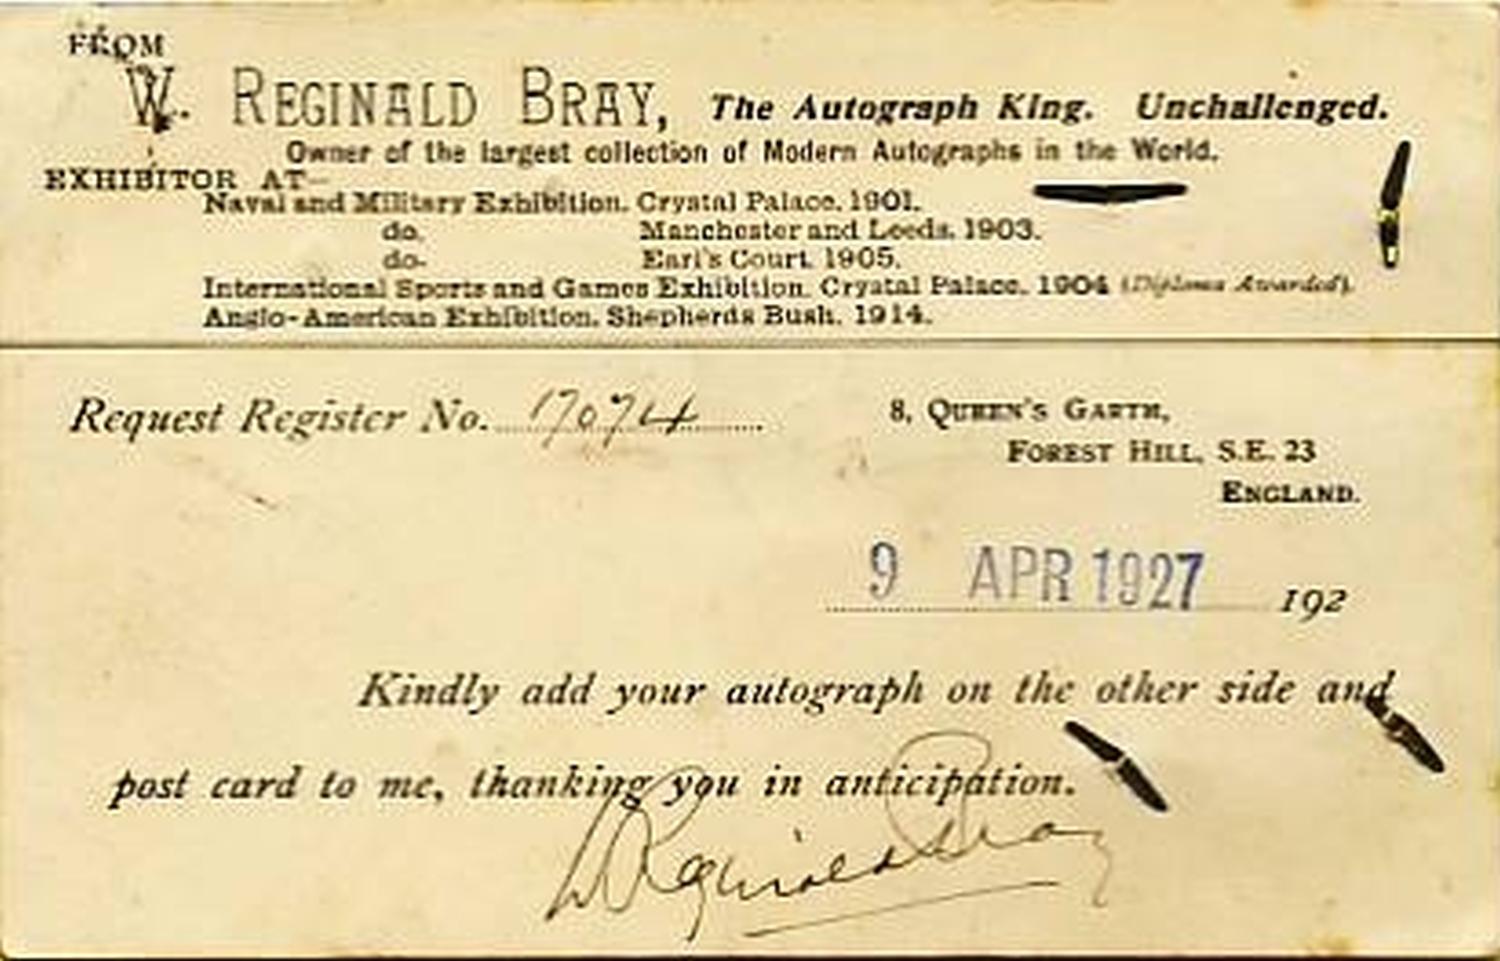 FROM
W. REGINALD BRAY, The Autograph King. Unchallenged.
Owner of the largest collection of Modern Autographs in the World.
EXHIBITOR AT—
Naval and Military Exhibition. Crystal Palace. 1901.
do. Manchester and Leeds. 1903.
do. Earl's Court. 1905.
International Sports and Games Exhibition. Crystal Palace. 1904 (Diploma Awarded).
Anglo-American Exhibition. Shepherds Bush. 1914.
Request Register No. 17074
8, QUEEN'S GARTH,
FOREST HILL, S.E. 23
ENGLAND.
9 APR 1927 192
Kindly add your autograph on the other side and
post card to me, thanking you in anticipation.
W Reginald Bray